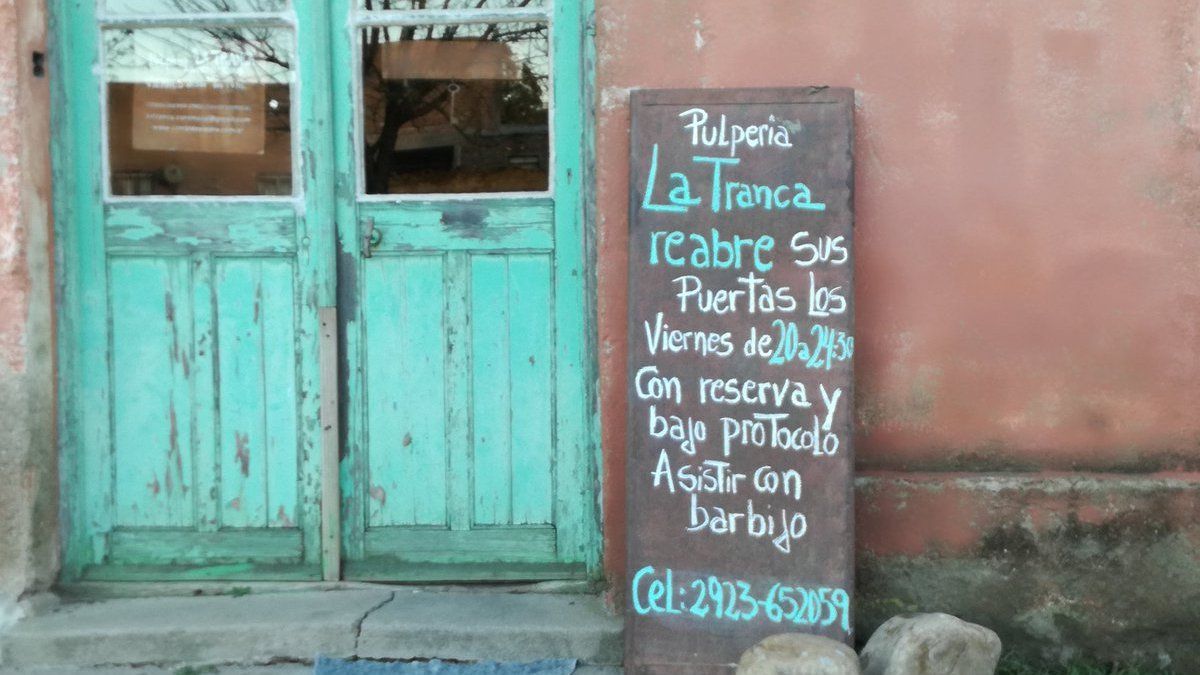 Pulperia
La Tranca
reabre Sus
Puertas Los
Viernes de 20 a 24:30
Con reserva y
bajo protocolo
Asistir con
barbijo
Cel: 2923-652059